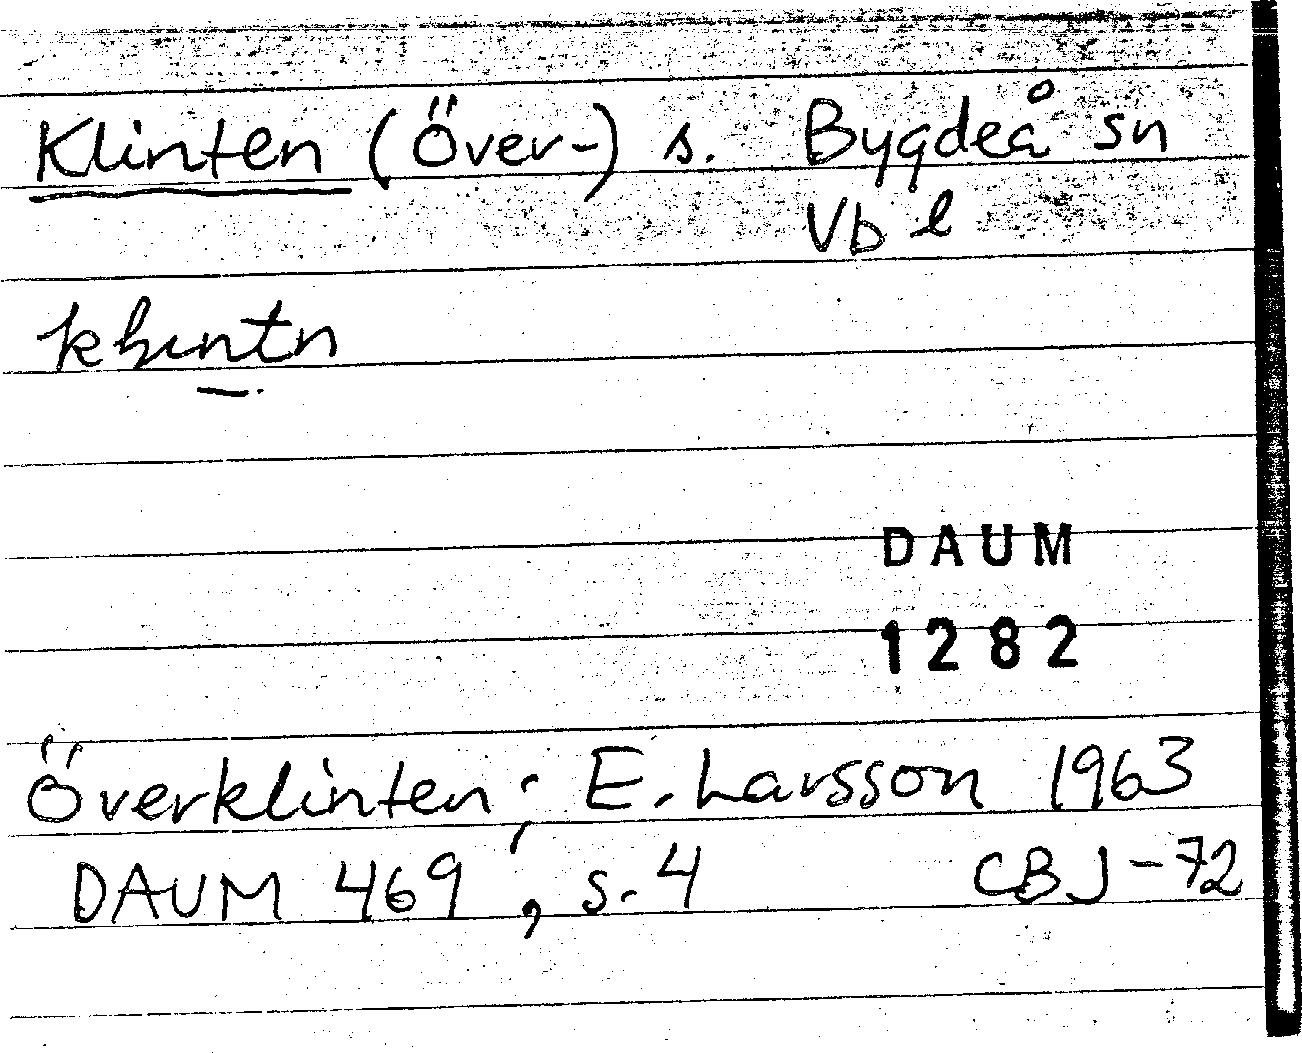 Klinten (Över-) s. Bygdeå sn
Vb l
DAUM
1282
Överklinten; E. Larsson 1963
DAUM 469, s. 4 CBJ-72